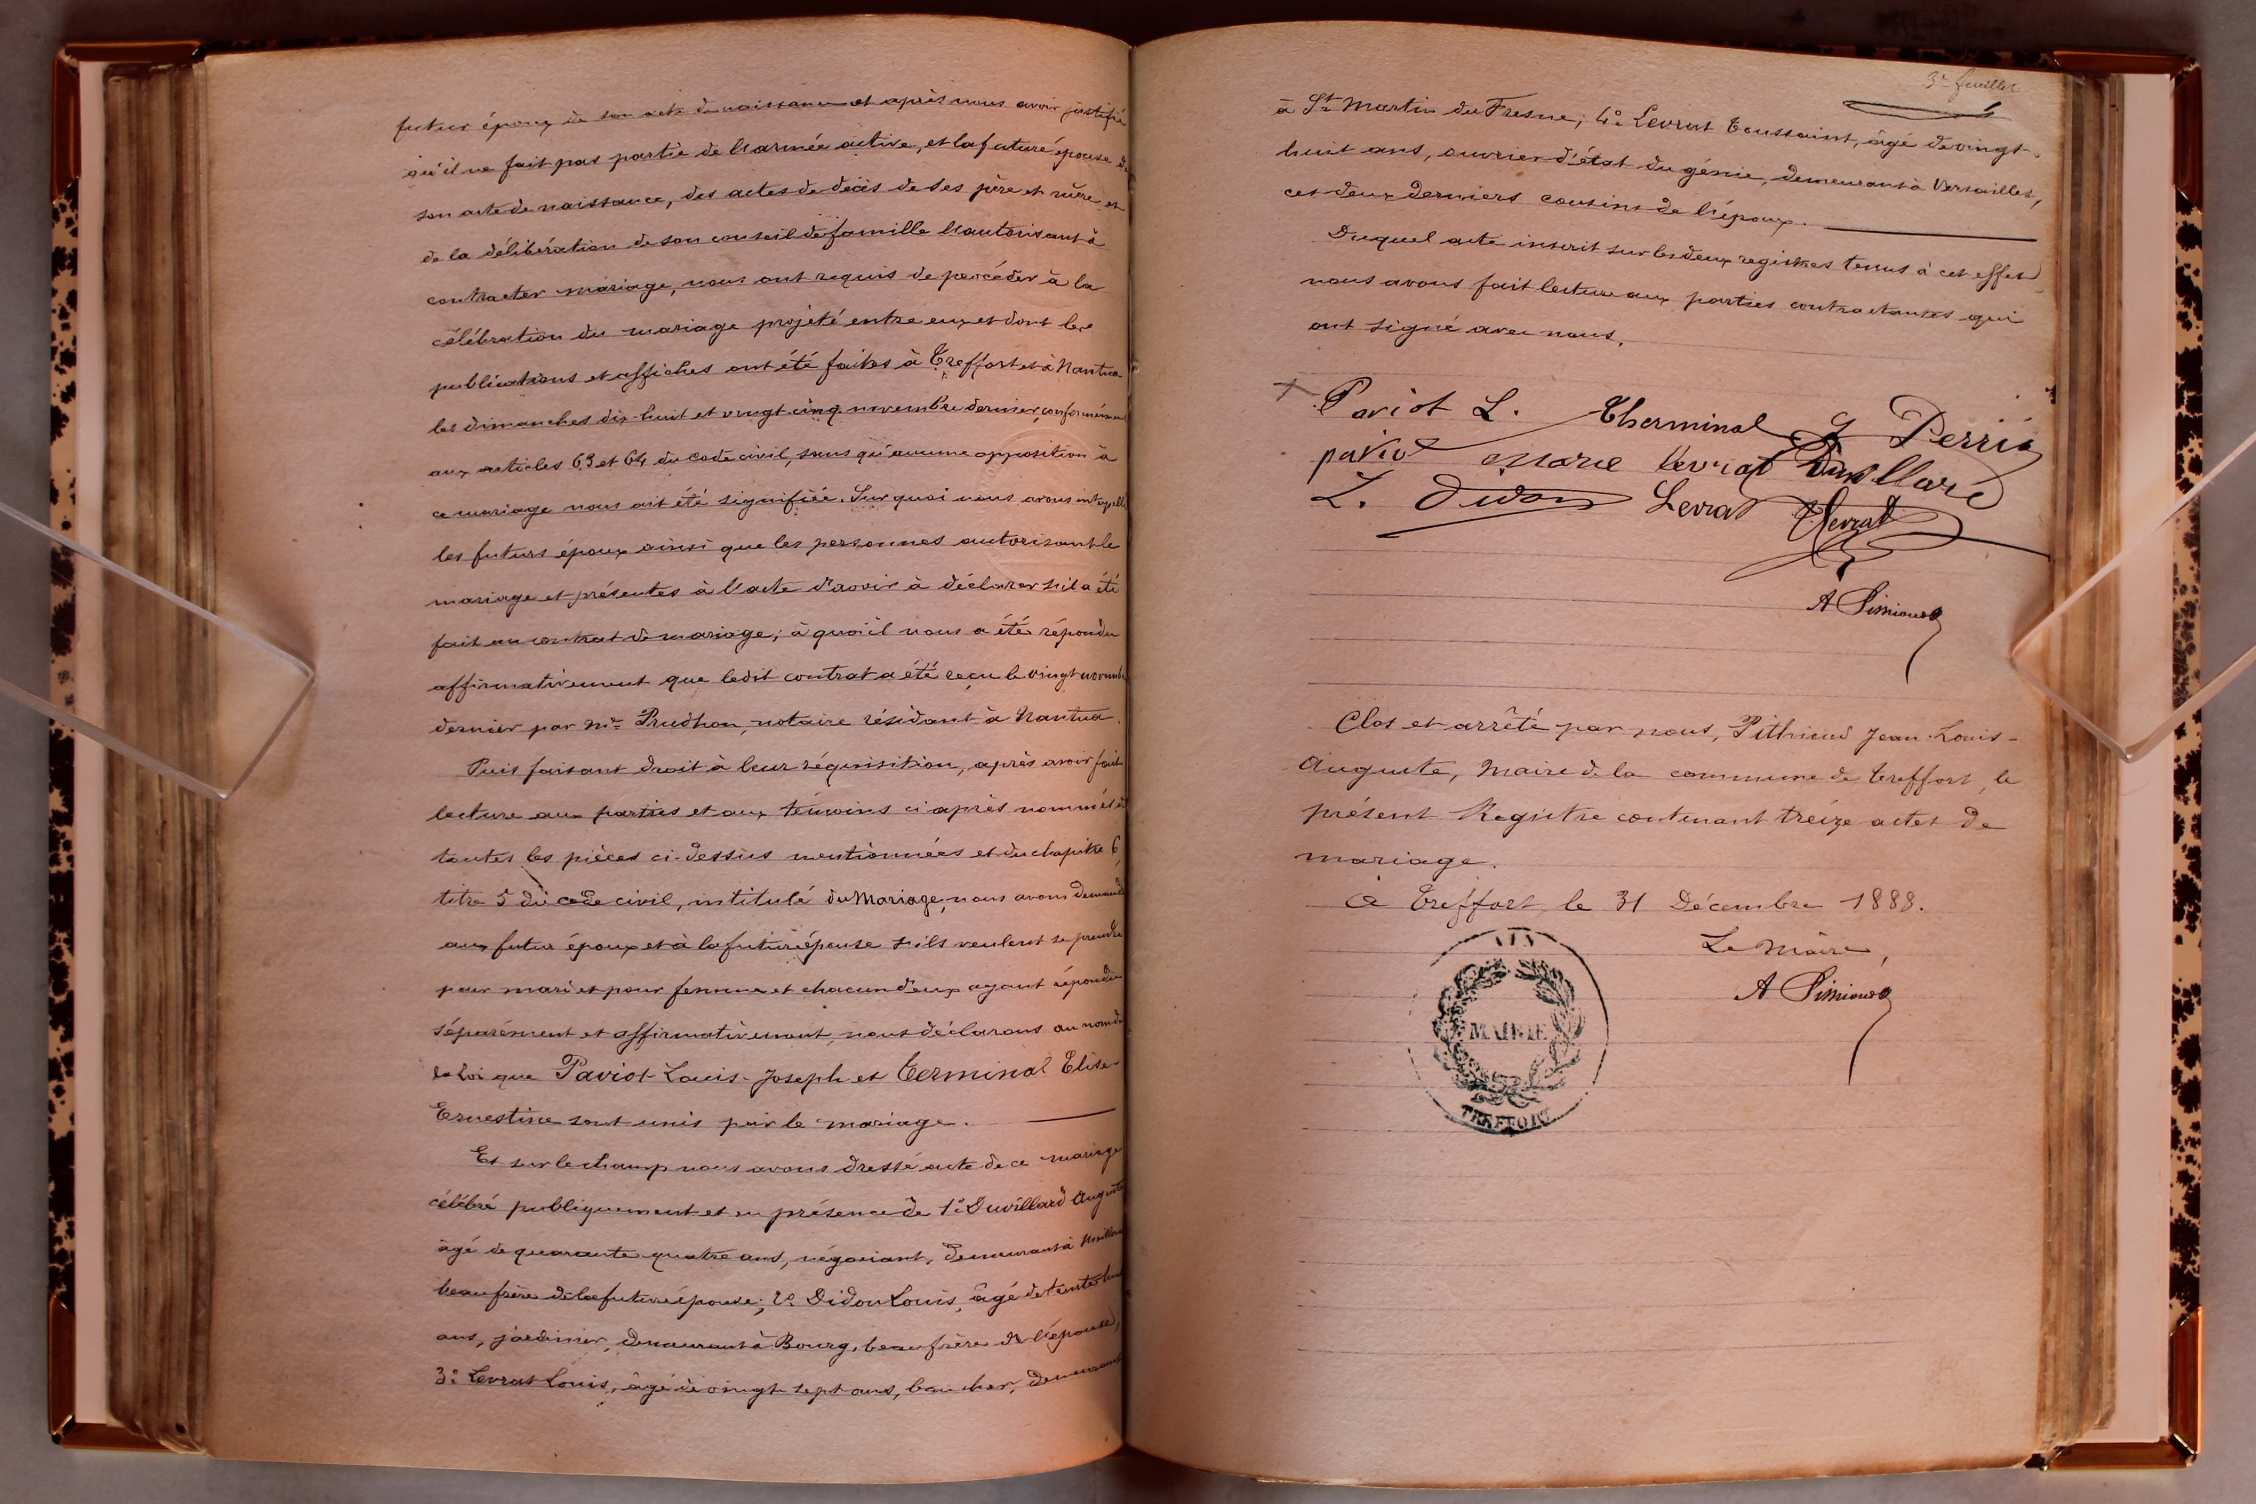 futur époux de son acte de naissance et après nous avoir justifié
qu'il ne fait pas partie de l'armée active, et la future épouse de
son acte de naissance, des actes de décès de ses père et mère et
de la délibération de son conseil de famille l'autorisant à
contracter mariage, nous ont requis de procéder à la
célébration du mariage projeté entre eux et dont les
publications et affiches ont été faites à Treffort et à Nantua
les dimanches dix-huit et vingt cinq novembre dernier, conformément
aux articles 63 et 64 du code civil, sans qu'aucune opposition à
ce mariage nous ait été signifiée. Sur quoi nous avons interpellé
les futurs époux ainsi que les personnes autorisant le
mariage et présentes à l'acte d'avoir à déclarer s'il a été
fait un contrat de mariage; à quoi il nous a été répondu
affirmativement que ledit contrat a été reçu le vingt novembre
dernier par Me Prudhon, notaire résidant à Nantua.
Puis faisant droit à leur réquisition, après avoir fait
lecture aux parties et aux témoins ci après nommés de
toutes les pièces ci-dessus mentionnées et du chapitre 6,
titre 5 du code civil, intitulé du Mariage, nous avons demandé
aux futur époux et à la future épouse s'ils veulent se prendre
pour mari et pour femme et chacun d'eux ayant répondu
séparément et affirmativement, nous déclarons au nom de
la loi que Paviot Louis-Joseph et Terminal Elise-
Ernestine sont unis par le mariage.
Et sur le champ nous avons dressé acte de ce mariage
célébré publiquement et en présence de 1° Duvillard Auguste
âgé de quarante quatre ans, négociant, demeurant à
beau frère de la future épouse; 2° Didon Louis, âgé de trente huit
ans, jardinier, demeurant à Bourg, beau frère de l'épouse,
3° Levrat Louis, âgé de vingt sept ans, boucher, demeurant
3e feuillet
à St Martin du Fresne; 4° Levrat Toussaint, âgé de vingt-
huit ans, ouvrier d'état du génie, demeurant à Versailles,
ces deux derniers cousins de l'époux.
Duquel acte inscrit sur les deux registres tenus à cet effet
nous avons fait lecture aux parties contractantes qui
ont signé avec nous.
Paviot L. Therminal J Perrin
paviot Marie Levrat Duvillard
L. Didon Levrat Levrat
Clos et arrêté par nous, Jean-Louis-
Auguste, Maire de la commune de Treffort, le
présent Registre contenant treize actes de
mariage.
A Treffort, le 31 Décembre 1888.
Le Maire,
AIN
MAIRIE
TREFFORT